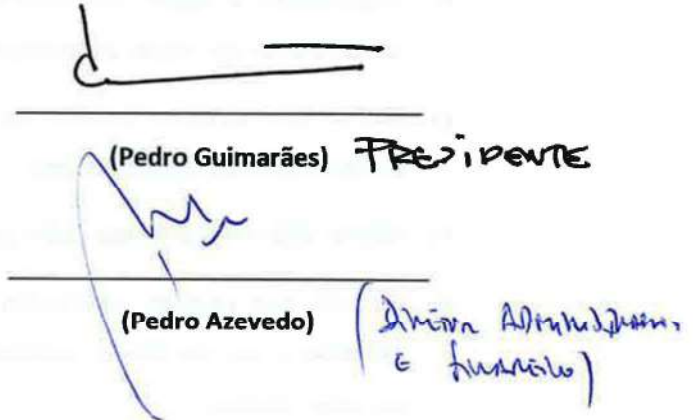 (Pedro Guimarães) PRESIDENTE
(Pedro Azevedo) (Diretor Administrativo
E financeiro)